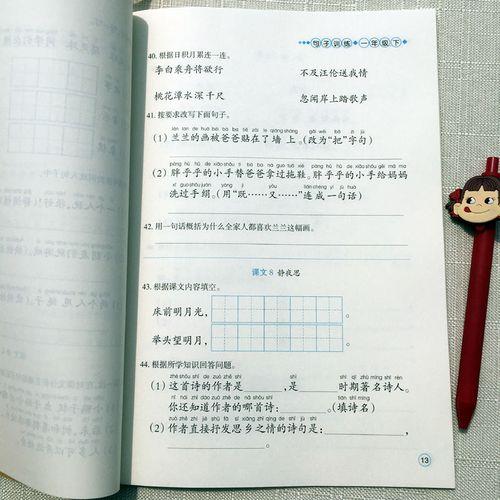 句子训练·一年级下
40. 根据日积月累连一连。
李白乘舟将欲行 不及汪伦送我情
桃花潭水深千尺 忽闻岸上踏歌声
41. 按要求改写下面句子。
lán lan de huà bèi bà ba tiē zài le qiáng shàng gǎi wéi bǎ zì jù
(1) 兰兰的画被爸爸贴在了墙上。(改为“把”字句)
(2) 胖乎乎的小手替爸爸拿过拖鞋。胖乎乎的小手给妈妈
洗过手绢。(用“既……又……”连成一句话)
42. 用一句话概括为什么全家人都喜欢兰兰这幅画。
课文8 静夜思
43. 根据课文内容填空。
床前明月光, 。
举头望明月, 。
44. 根据所学知识回答问题。
zhè shǒu shī de zuò zhě shì shì shí qī zhù míng shī rén
(1) 这首诗的作者是 ,是 时期著名诗人。
nǐ hái zhī dào zuò zhě de nǎ shǒu shī tián shī míng
你还知道作者的哪首诗: 。(填诗名)
zuò zhě zhí jiē shū fā sī xiāng zhī qíng de shī jù shì
(2) 作者直接抒发思乡之情的诗句是: ,
。
13